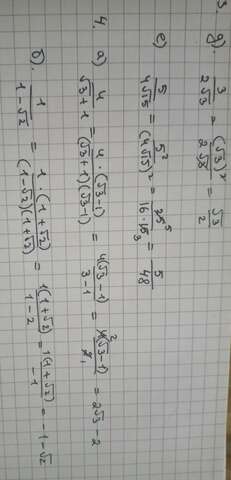 3.
g). 3/(2√3) = (√3)²/(2√3) = √3/2
e) 5/(4√15) = 5²/(4√15)² = 25⁵/(16·15₃) = 5/48
4.
a) 4/(√3+1) = 4·(√3-1)/((√3+1)(√3-1)) = 4(√3-1)/(3-1) = 4²(√3-1)/2₁ = 2√3-2
б). 1/(1-√2) = 1·(1+√2)/((1-√2)(1+√2)) = 1(1+√2)/(1-2) = 1(1+√2)/(-1) = -1-√2